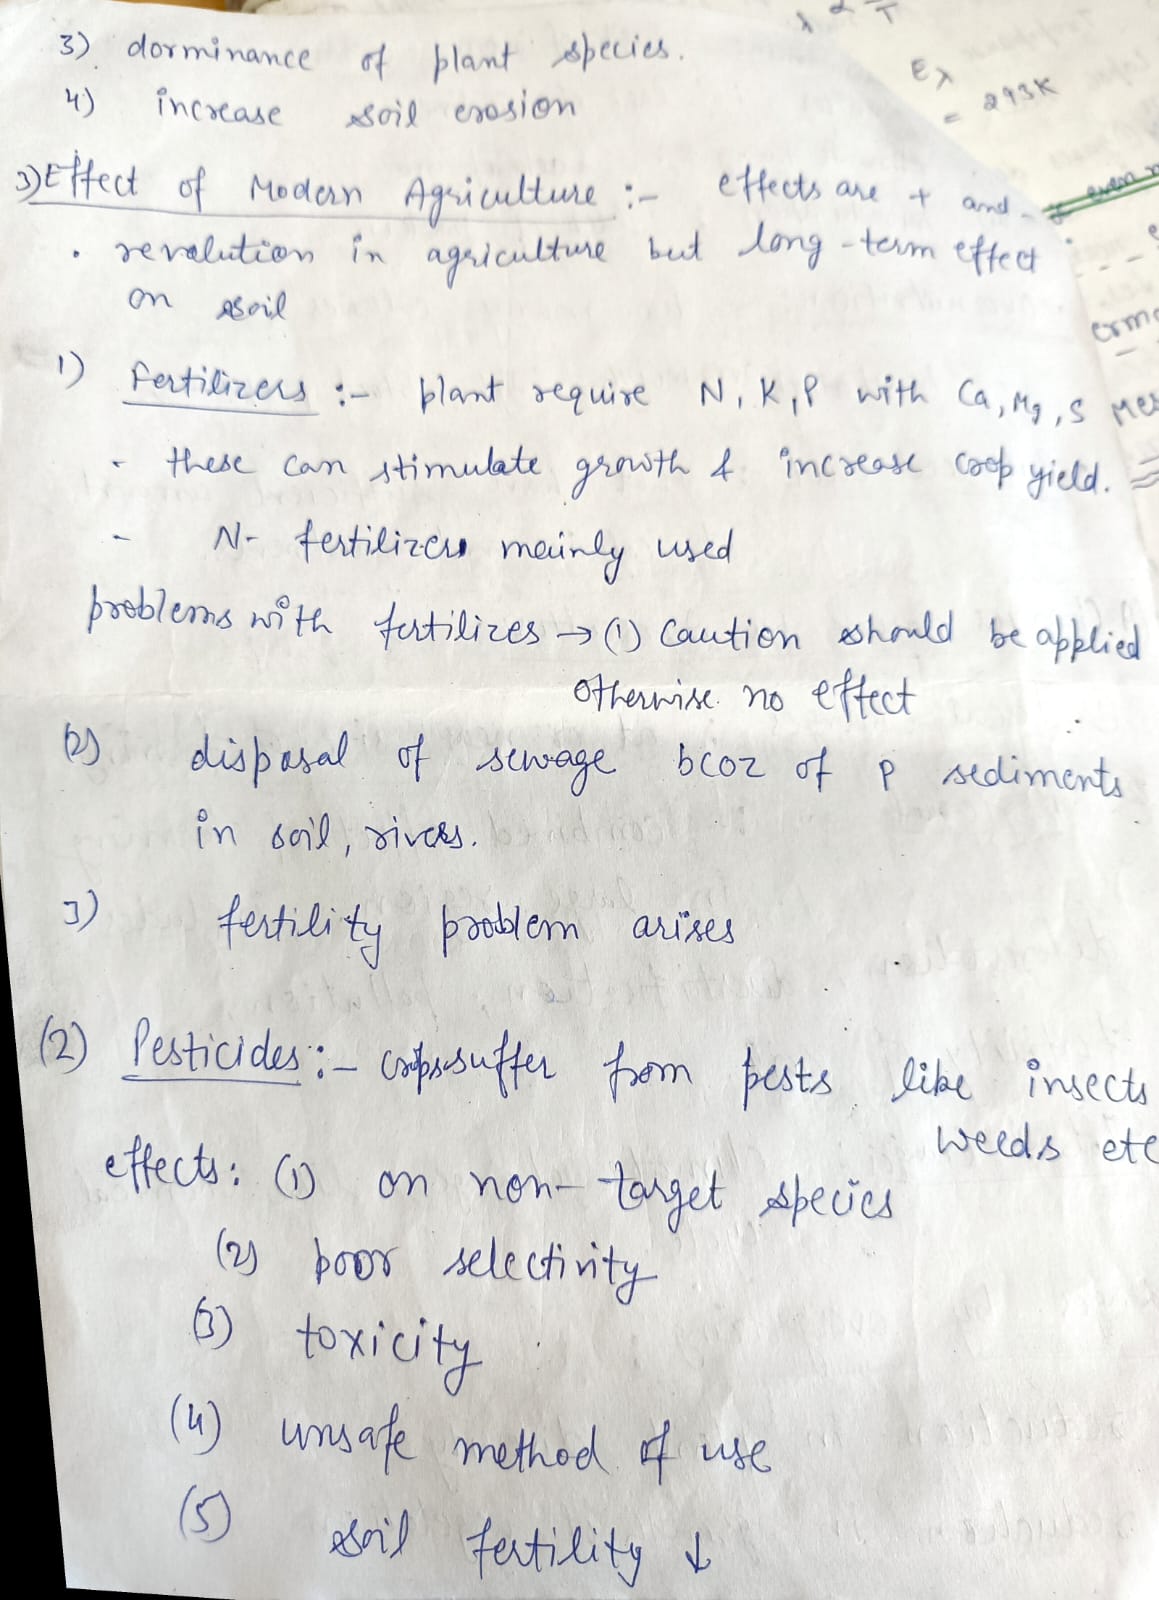 3) dorminance of plant species.
4) increase soil erosion
3) Effect of Modern Agriculture :- effects are + and -
• revolution in agriculture but long-term effect
on soil
1) Fertilizers :- plant require N, K, P with Ca, Mg, S
- these can stimulate growth & increase crop yield.
- N- fertilizers mainly used
problems with fertilizes → (1) Caution should be applied
otherwise no effect
(2) disposal of sewage bcoz of P sediments
in soil, rivers.
3) fertility problem arises
(2) Pesticides :- crops suffer from pests like insects
weeds etc
effects: (1) on non-target species
(2) poor selectivity
(3) toxicity
(4) unsafe method of use
(5) soil fertility ↓
λ α 1/T
Eλ
= 293K